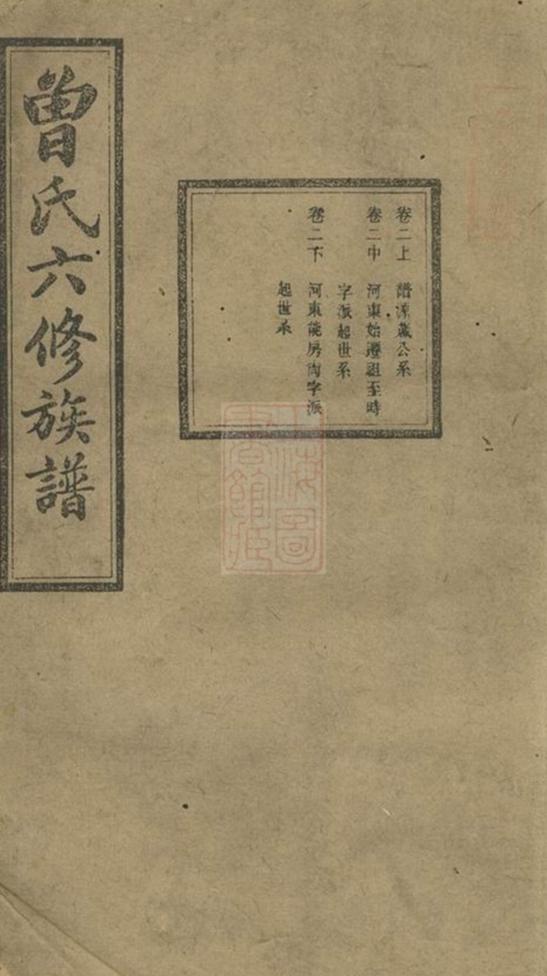 曾氏六修族譜
卷二上 譜源蒧公系
卷二中 河東始遷祖至時
字派起世系
卷二下 河東能房內字派
起世系
上海圖
書館藏